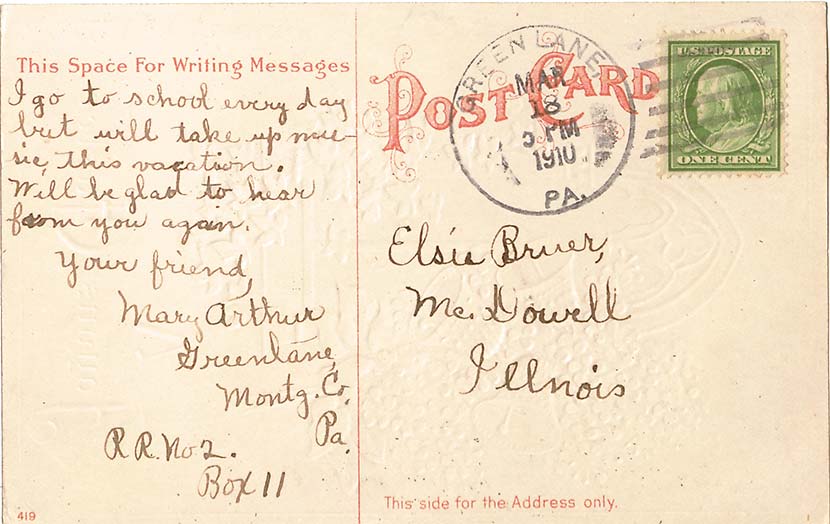 This Space For Writing Messages
I go to school every day
but will take up mu-
sic, this vacation.
Will be glad to hear
from you again.
Your friend,
Mary Arthur
Greenlane,
Montg. Co.
Pa.
R.R. No 2.
Box 11
419
POST CARD
GREEN LANE,
MAR
18
3 PM
1910
PA.
U.S. POSTAGE
ONE CENT
Elsie Bruer,
Mc. Dowell
Illnois
This side for the Address only.